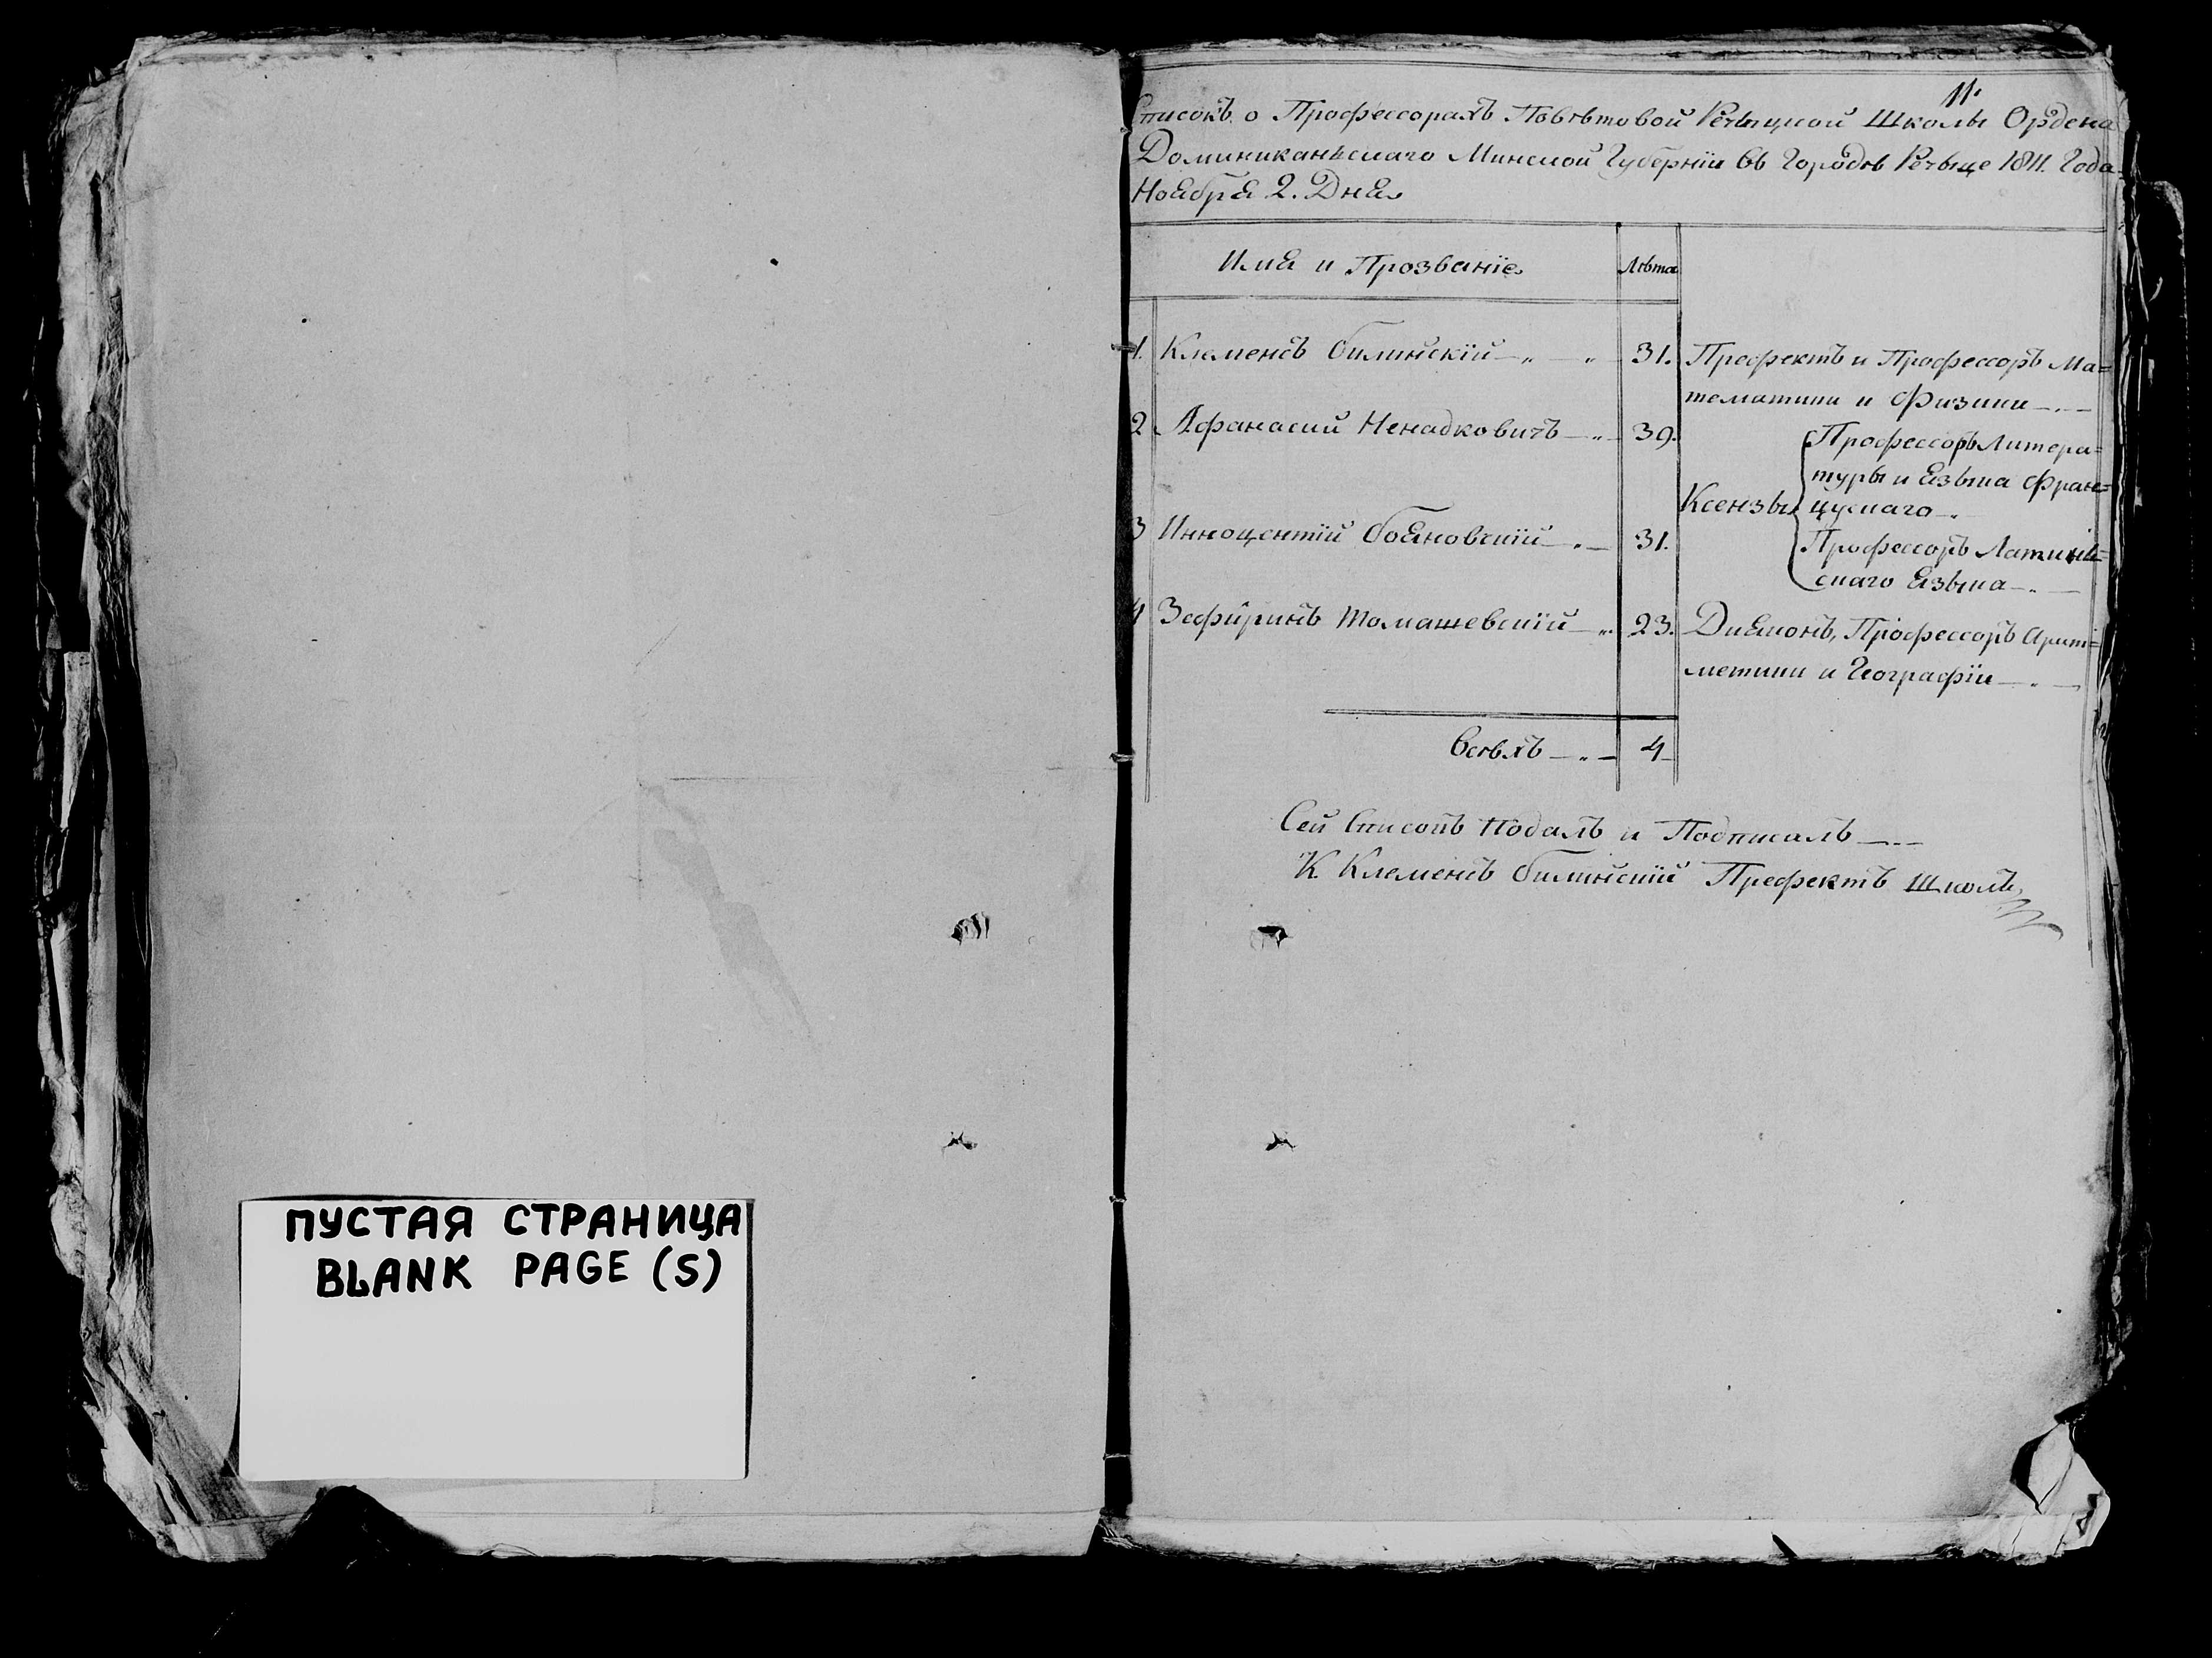 11.
Списокъ о Профессорахъ Повѣтовой Речыцкой Школы Ордена
Доминиканьскаго Минской Губернїи въ Городѣ Речыце 1811. Года
Ноября 2. Дня
Имя и Прозванїе Лѣта
1. Клеменсъ Билинскїй 31. Префектъ и Профессоръ Ма=
тематики и Физики
2 Афанасий Ненадковичъ 39. Профессоръ Литера=
туры и Языка Фран=
Ксензы цускаго
3 Иннощентїй Бояновскїй 31. Профессоръ Латинь=
скаго Языка
4 Зефиринъ Томашевскїй 23. Дияконъ, Профессоръ Арит=
метики и Географїи
Всѣхъ 4
Сей Списокъ Подалъ и Подписалъ
К. Клеменсъ Билинскїй Префектъ Школъ
ПУСТАЯ СТРАНИЦА
BLANK PAGE (S)